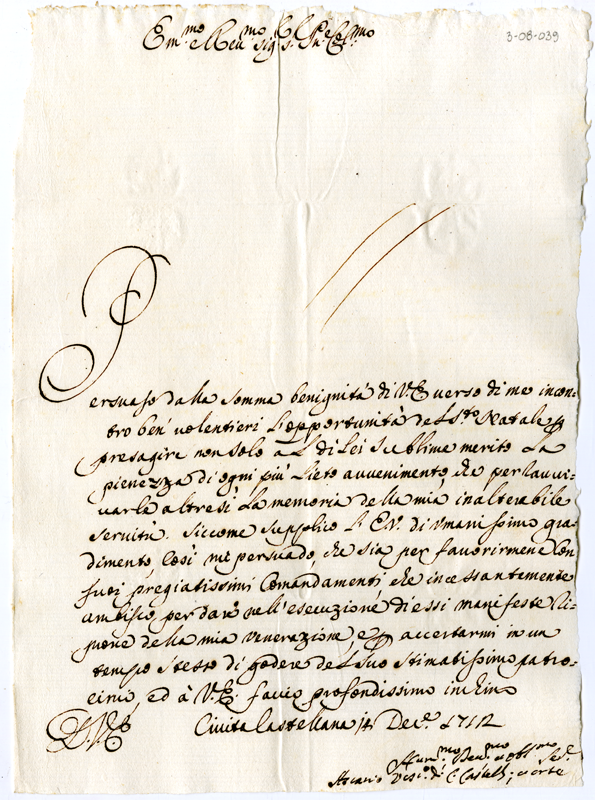 Em.mo e Reu.mo Sig.
3-08-039
Persuaso dalla somma benignità di V.E. verso di me incon-
tro ben' volentieri l'opportunità del S.to Natale p
presagire non solo al di Lei sublime merito la
pienezza di ogni più lieto auuenimento, che per rauui-
uarle altresì la memoria della mia inalterabile
seruitù. Siccome supplico l'E.V. di vmanissimo gra-
dimento, così mi persuado, che sia per fauorirmene con
suoi pregiatissimi comandamenti che incessantemente
ambisco, per dare nell'esecuzione di essi manifeste ri-
proue della mia venerazione, e p accertarmi in un
tempo stesso di godere del suo stimatissimo patro-
cinio, ed à V.E. faccio profondissimo inchino
Ciuita Castellana 14 Dec.e 1712
D.V.E.
Vm.mo Deu.mo et obl.mo Se.
Vesc.o di C. Castell.a, e Orte